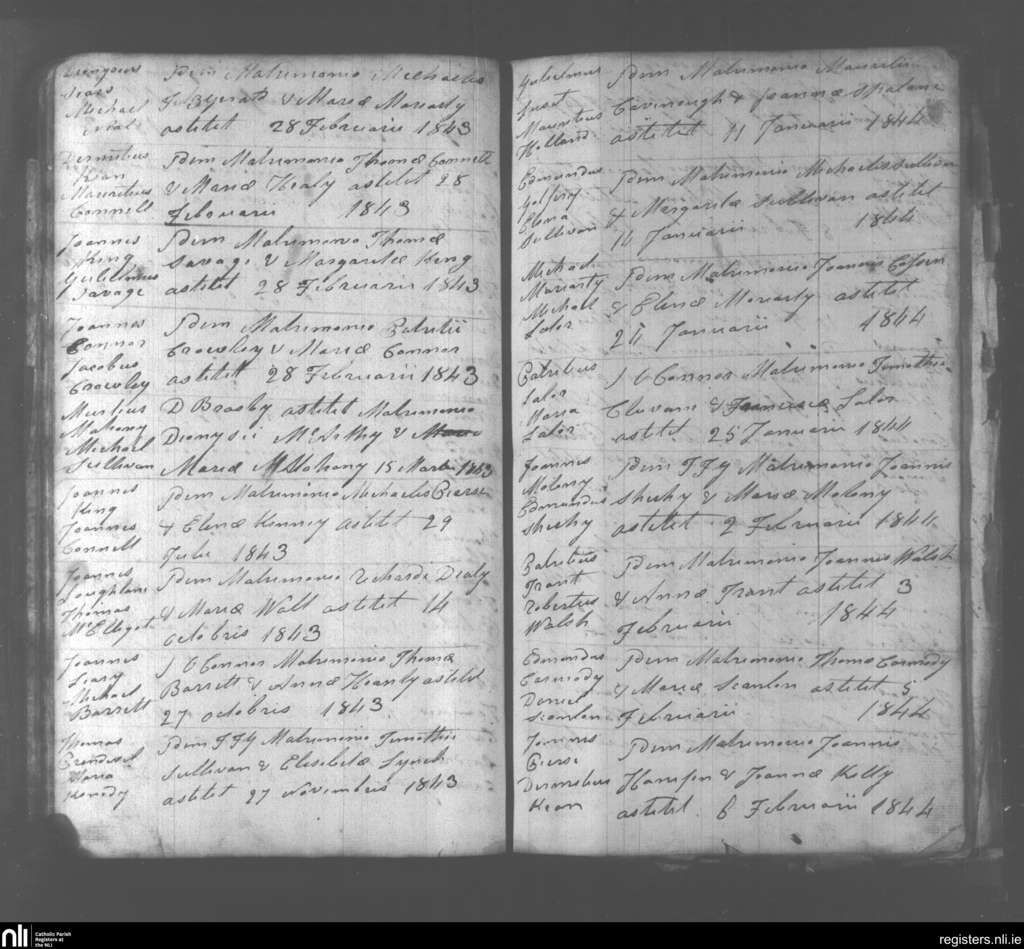 Michael
Idem Matrimonio Michaelis
Fitzgerald & Mariæ Moriarty
astitit 28 Februarii 1843
Dermitius
Kean
Mauritius
Connell
Idem Matrimonio Thomæ Connell
& Mariæ Healy astitit 28
Februarii 1843
Joannes
King
Gulielmus
Savage
Idem Matrimonio Thomæ
Savage & Margaritæ King
astitit 28 Februarii 1843
Joannes
Connor
Jacobus
Crowley
Idem Matrimonio Patritii
Crowley & Mariæ Connor
astitit 28 Februarii 1843
Mahony
Michael
Sullivan
D Brosby astitit Matrimonio
Dionysii &
Mariæ Mahony 15 1843
Joannes
King
Joannes
Connell
Idem Matrimonio Michaelis Pierse
+ Elenæ Kenney astitit 29
Julii 1843
Joannes
Coughlane
Thomas
McElligot
Idem Matrimonio Richardi Dealy
& Mariæ Wall astitit 14
Octobris 1843
Joannes
Leary
Michael
Barrett
J O Connor Matrimonio Thomæ
Barrett & Annæ astitit
27 octobris 1843
Thomas
Maria
Kenedy
Idem Matrimonio Timothii
Sullivan & Elisibetæ Lynch
astitit 27 Novembris 1843
Gulielmus
Mauritius
Holland
Idem Matrimonio Mauritii
Cavinough & Joannæ
astitit 11 Januarii 1844
Edmundus
Elena
Sullivan
Idem Matrimonio Michaelis Sullivan
& Margaritæ Sullivan astitit
14 Januarii 1844
Michael
Moriarty
Michell
Lalor
Idem Matrimonio Joannis
& Elenæ Moriarty astitit
Januarii 1844
Patritius
Lalor
Maria
Lalor
J O Connor Matrimonio Timothii
& Lalor
astitit 25 Januarii 1844
Joannes
Molony
Edmundus
Shehy
Idem Matrimonio Joannis
Shehy & Mariæ Molony
astitit 2 Februarii 1844
Patritius
Trant
Robertus
Walsh
Idem Matrimonio Joannis Walsh
& Annæ Trant astitit 3
Februarii 1844
Edmundus
Carmody
Daniel
Scanlon
Idem Matrimonio Thomæ Carmody
& Mariæ Scanlon astitit 5
Februarii 1844
Joannis
Pierse
Dermitius
Kean
Idem Matrimonio Joannis
& Joannæ Kelly
astitit 6 Februarii 1844
nli
Catholic Parish
Registers at
the NLI
registers.nli.ie